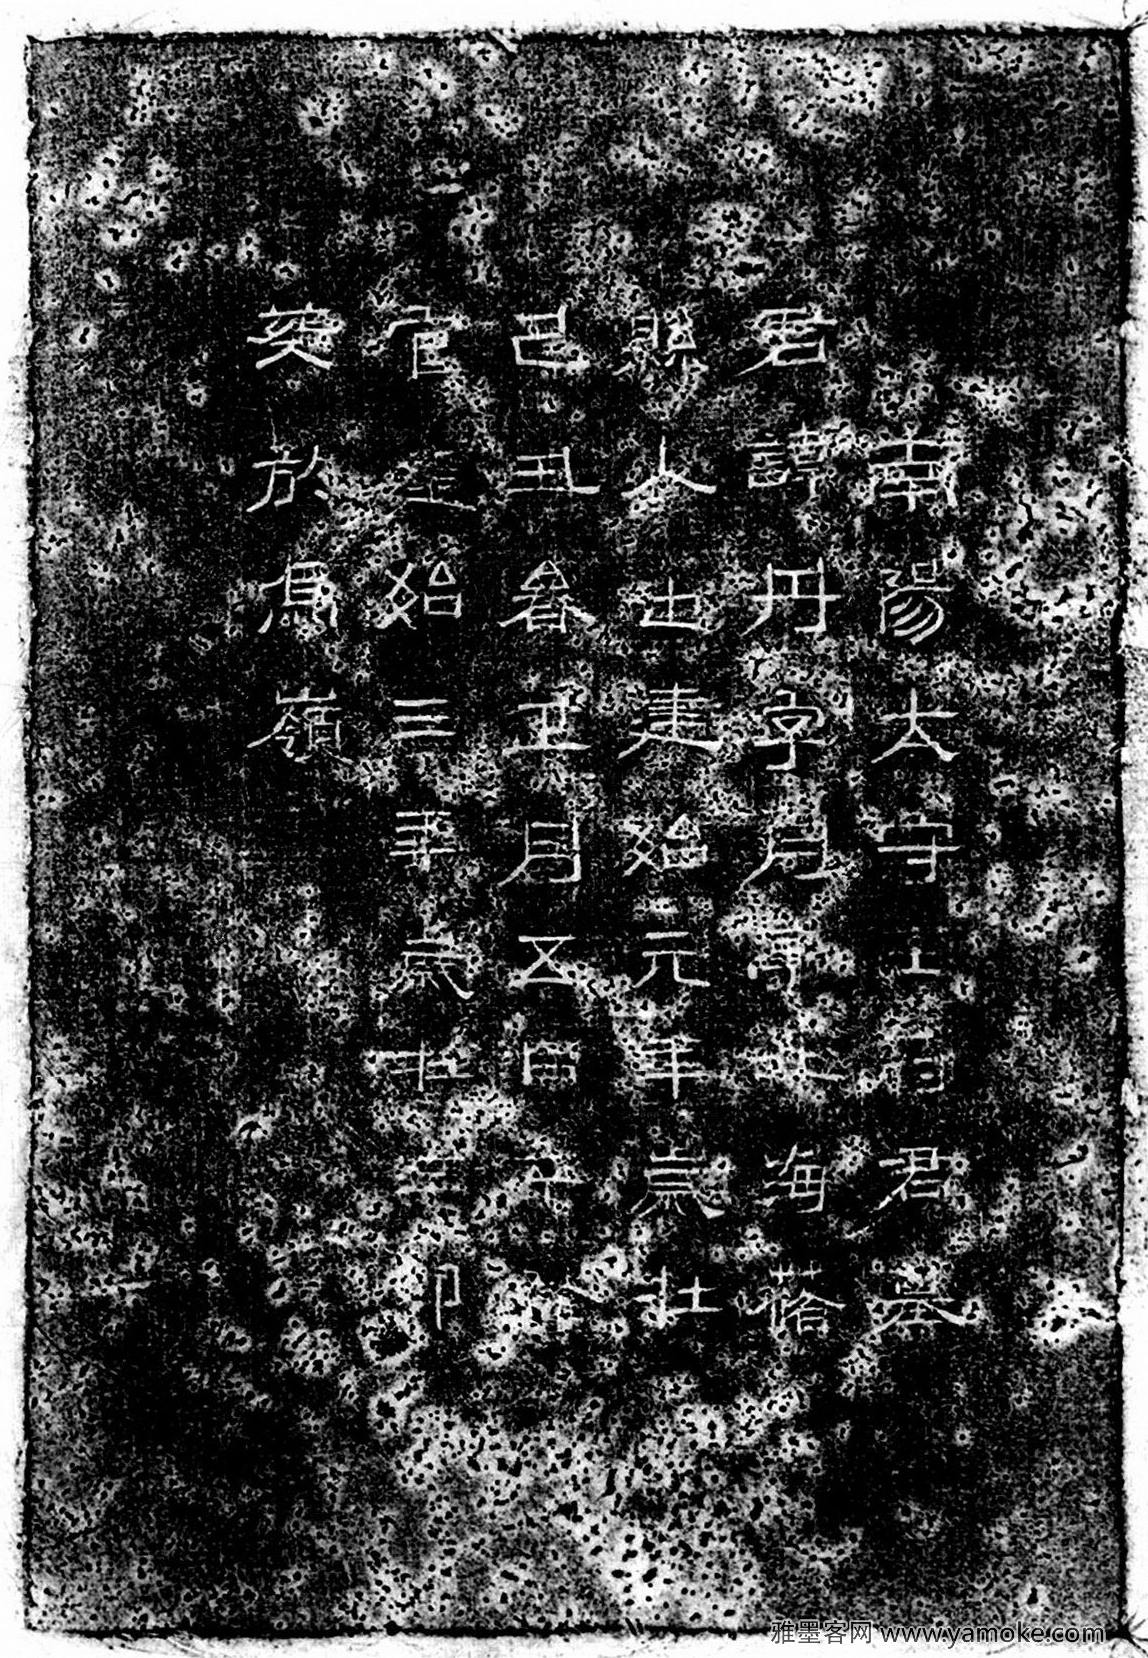 南陽太守君墓
君諱丹字月亭北海
縣人也建始元年歲在
己丑春正月五日卒於
官至始三年歲在辛卯
葬於馬嶺
雅墨客网 www.yamoke.com